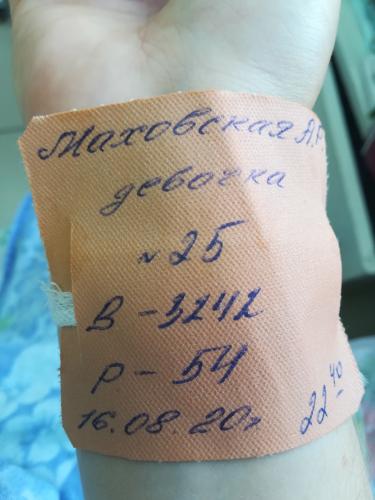 Маховская А.Р
девочка
№25
В - 3242
р - 54
16.08.20г 22 40